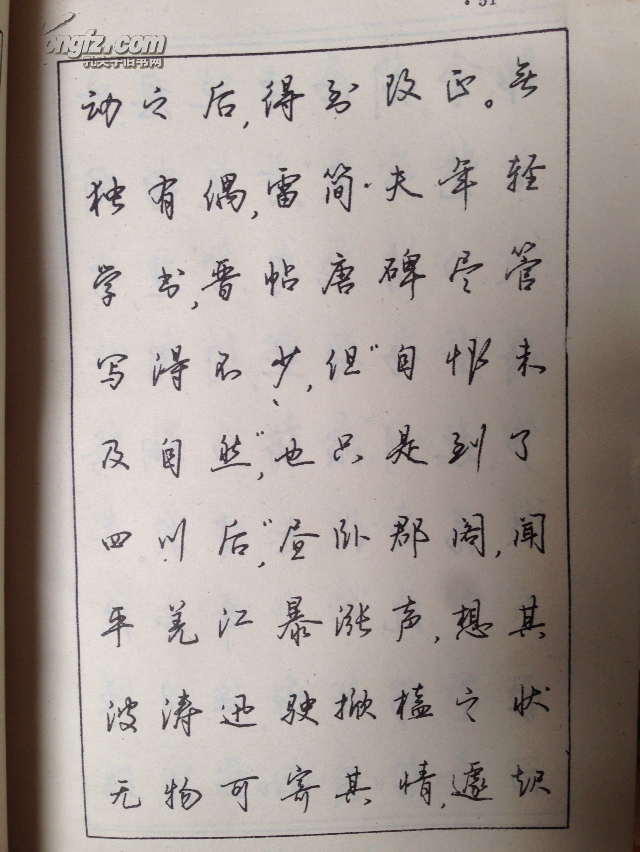 · 51
kongfz.com
孔夫子旧书网
动之后，得到改正。无
独有偶，雷简夫年轻
学书，晋帖唐碑尽管
写得不少，但“自恨未
及自然”，也只是到了
四川后，“昼卧郡阁，闻
平羌江暴涨声，想其
波涛迅驶掀榼之状
无物可寄其情，遽起